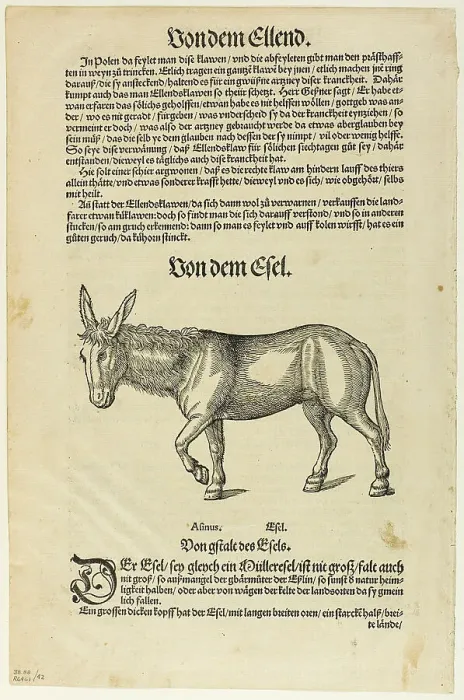 Von dem Ellend.
In Polen da feylet man dise klawen / vnd die abfeyleten gibt man den prästhaff-
ten in weyn zů trincken. Etlich tragen ein gantze klawe bey jnen / etlich machen jnē ring
darauß / die sy ansteckend / haltend es für ein gwüsne artzney diser kranckheit. Dahär
kumpt auch das man Ellendsklawen so theür schetzt. Herr Geßner sagt / Er habe et-
wan erfaren das sölichs geholffen / etwan habe es nit helffen wöllen / gott geb was an-
der / wo es nit geradt / fürgeben / was vnderscheid sy da der kranckheit eynziehen / so
vermeint er doch / was also der artzney gebraucht werde da etwas aberglauben bey
sein můß / das die selb ye dem glauben nach dessen der sy nimpt / vil oder wenig helffe.
So seye dise verwänung / daß Ellendsklaw für sölichen siechtagen gůt sey / dahär
entstanden / dieweyl es täglichs auch dise kranckheit hat.
Hie solt einer schier argwonen / daß es die rechte klaw am hindern lauff des thiers
allein thätte / vnd etwas sonderer krafft hette / dieweyl vnd es sich / wie obgehört / selbs
mit heilt.
An statt der Ellendsklawen / da sich dann wol zů verwarnen / verkauffen die land-
farer etwan kůklawen: doch so findt man die sich darauff verstond / vnd so in anderen
stucken / so am gruch erkennend: dann so man es feylet vnd auff kolen wirfft / hat es ein
gůten geruch / da kůhorn stinckt.
Von dem Esel.
Asinus. Esel.
Von gstalt des Esels.
Der Esel / sey gleych ein Mülleresel / ist nit groß / fale auch
nit groß / so auß mangel der gbärmůter der Eßlin / so sunst d natur heim-
ligkeit halben / oder aber von wägen der kelte der landsorten da sy gmein
lich fallen.
Ein grossen dicken kopff hat der Esel / mit langen breiten oren / ein starckē halß / brei-
te lände /